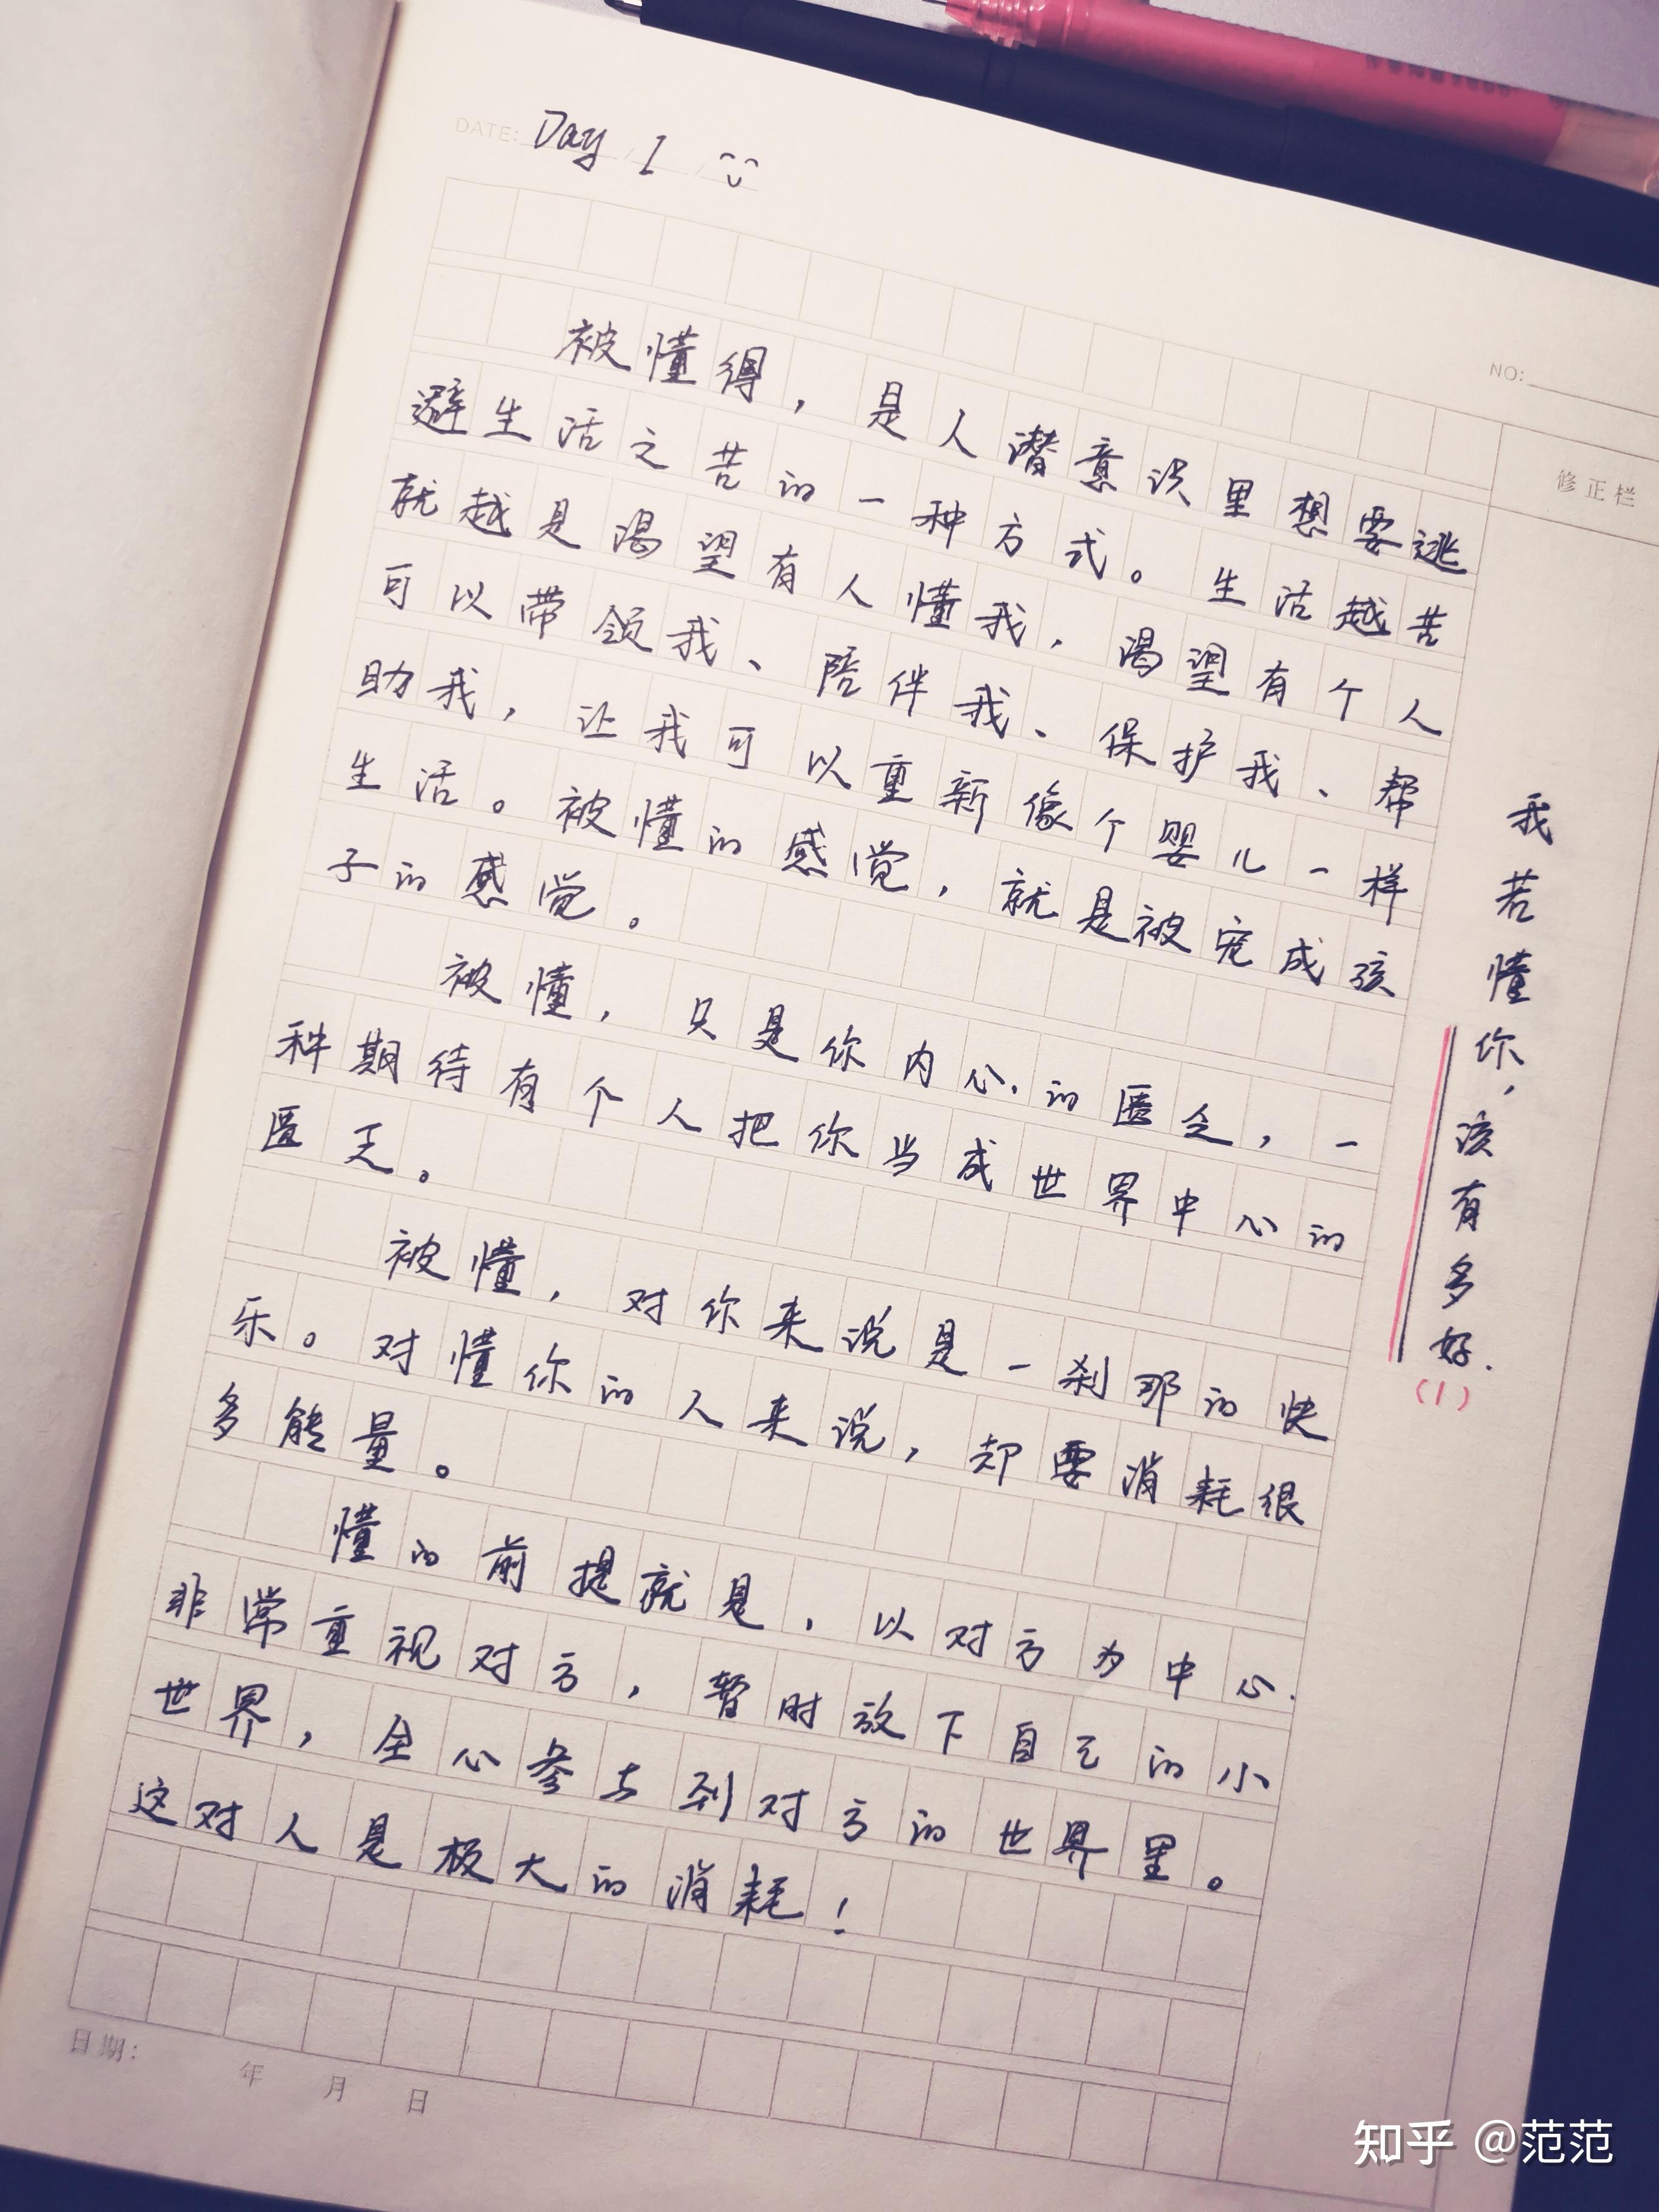 DATE: Day 1
NO:
修正栏
被懂得，是人潜意识里想要逃
避生活之苦的一种方式。生活越苦
就越是渴望有人懂我，渴望有个人
可以带领我、陪伴我、保护我、帮
助我，让我可以重新像个婴儿一样
生活。被懂的感觉，就是被宠成孩
子的感觉。
被懂，只是你内心的匮乏，一
种期待有个人把你当成世界中心的
匮乏。
被懂，对你来说是一刹那的快
乐。对懂你的人来说，却要消耗很
多能量。
懂的前提就是，以对方为中心.
非常重视对方，暂时放下自己的小
世界，全心参与到对方的世界里。
这对人是极大的消耗！
我若懂你，该有多好.
(1)
日期： 年 月 日
知乎 @范范